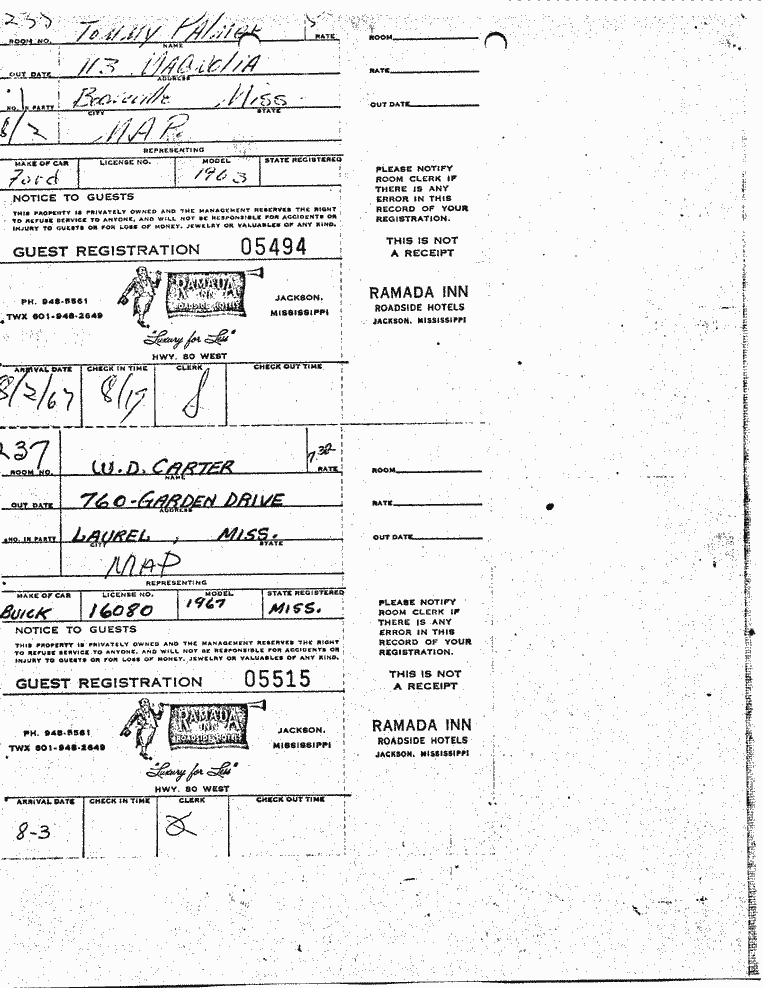 237
Tommy Palmer
ROOM NO. NAME RATE
ROOM
113 MAGNOLIA
OUT DATE ADDRESS
RATE
Booneville Miss
NO. IN PARTY CITY STATE
OUT DATE
8/2 MAP.
REPRESENTING
MAKE OF CAR LICENSE NO. MODEL STATE REGISTERED
Ford 1963
PLEASE NOTIFY
ROOM CLERK IF
THERE IS ANY
ERROR IN THIS
RECORD OF YOUR
REGISTRATION.
NOTICE TO GUESTS
THIS PROPERTY IS PRIVATELY OWNED AND THE MANAGEMENT RESERVES THE RIGHT
TO REFUSE SERVICE TO ANYONE, AND WILL NOT BE RESPONSIBLE FOR ACCIDENTS OR
INJURY TO GUESTS OR FOR LOSS OF MONEY, JEWELRY OR VALUABLES OF ANY KIND.
THIS IS NOT
A RECEIPT
GUEST REGISTRATION 05494
RAMADA
INN
ROADSIDE HOTELS
PH. 948-5561
TWX 601-948-2649
JACKSON,
MISSISSIPPI
RAMADA INN
ROADSIDE HOTELS
JACKSON, MISSISSIPPI
"Luxury for Less"
HWY. 80 WEST
ARRIVAL DATE CHECK IN TIME CLERK CHECK OUT TIME
8/2/67 8/17
237 W.D. CARTER 7.32
ROOM NO. NAME RATE
ROOM
760-GARDEN DRIVE
OUT DATE ADDRESS
RATE
LAUREL, MISS.
NO. IN PARTY CITY STATE
OUT DATE
MAP
REPRESENTING
MAKE OF CAR LICENSE NO. MODEL STATE REGISTERED
BUICK 16080 1967 MISS.
PLEASE NOTIFY
ROOM CLERK IF
THERE IS ANY
ERROR IN THIS
RECORD OF YOUR
REGISTRATION.
NOTICE TO GUESTS
THIS PROPERTY IS PRIVATELY OWNED AND THE MANAGEMENT RESERVES THE RIGHT
TO REFUSE SERVICE TO ANYONE, AND WILL NOT BE RESPONSIBLE FOR ACCIDENTS OR
INJURY TO GUESTS OR FOR LOSS OF MONEY, JEWELRY OR VALUABLES OF ANY KIND.
THIS IS NOT
A RECEIPT
GUEST REGISTRATION 05515
RAMADA
INN
ROADSIDE HOTELS
PH. 948-5561
TWX 601-948-2649
JACKSON,
MISSISSIPPI
RAMADA INN
ROADSIDE HOTELS
JACKSON, MISSISSIPPI
"Luxury for Less"
HWY. 80 WEST
ARRIVAL DATE CHECK IN TIME CLERK CHECK OUT TIME
8-3